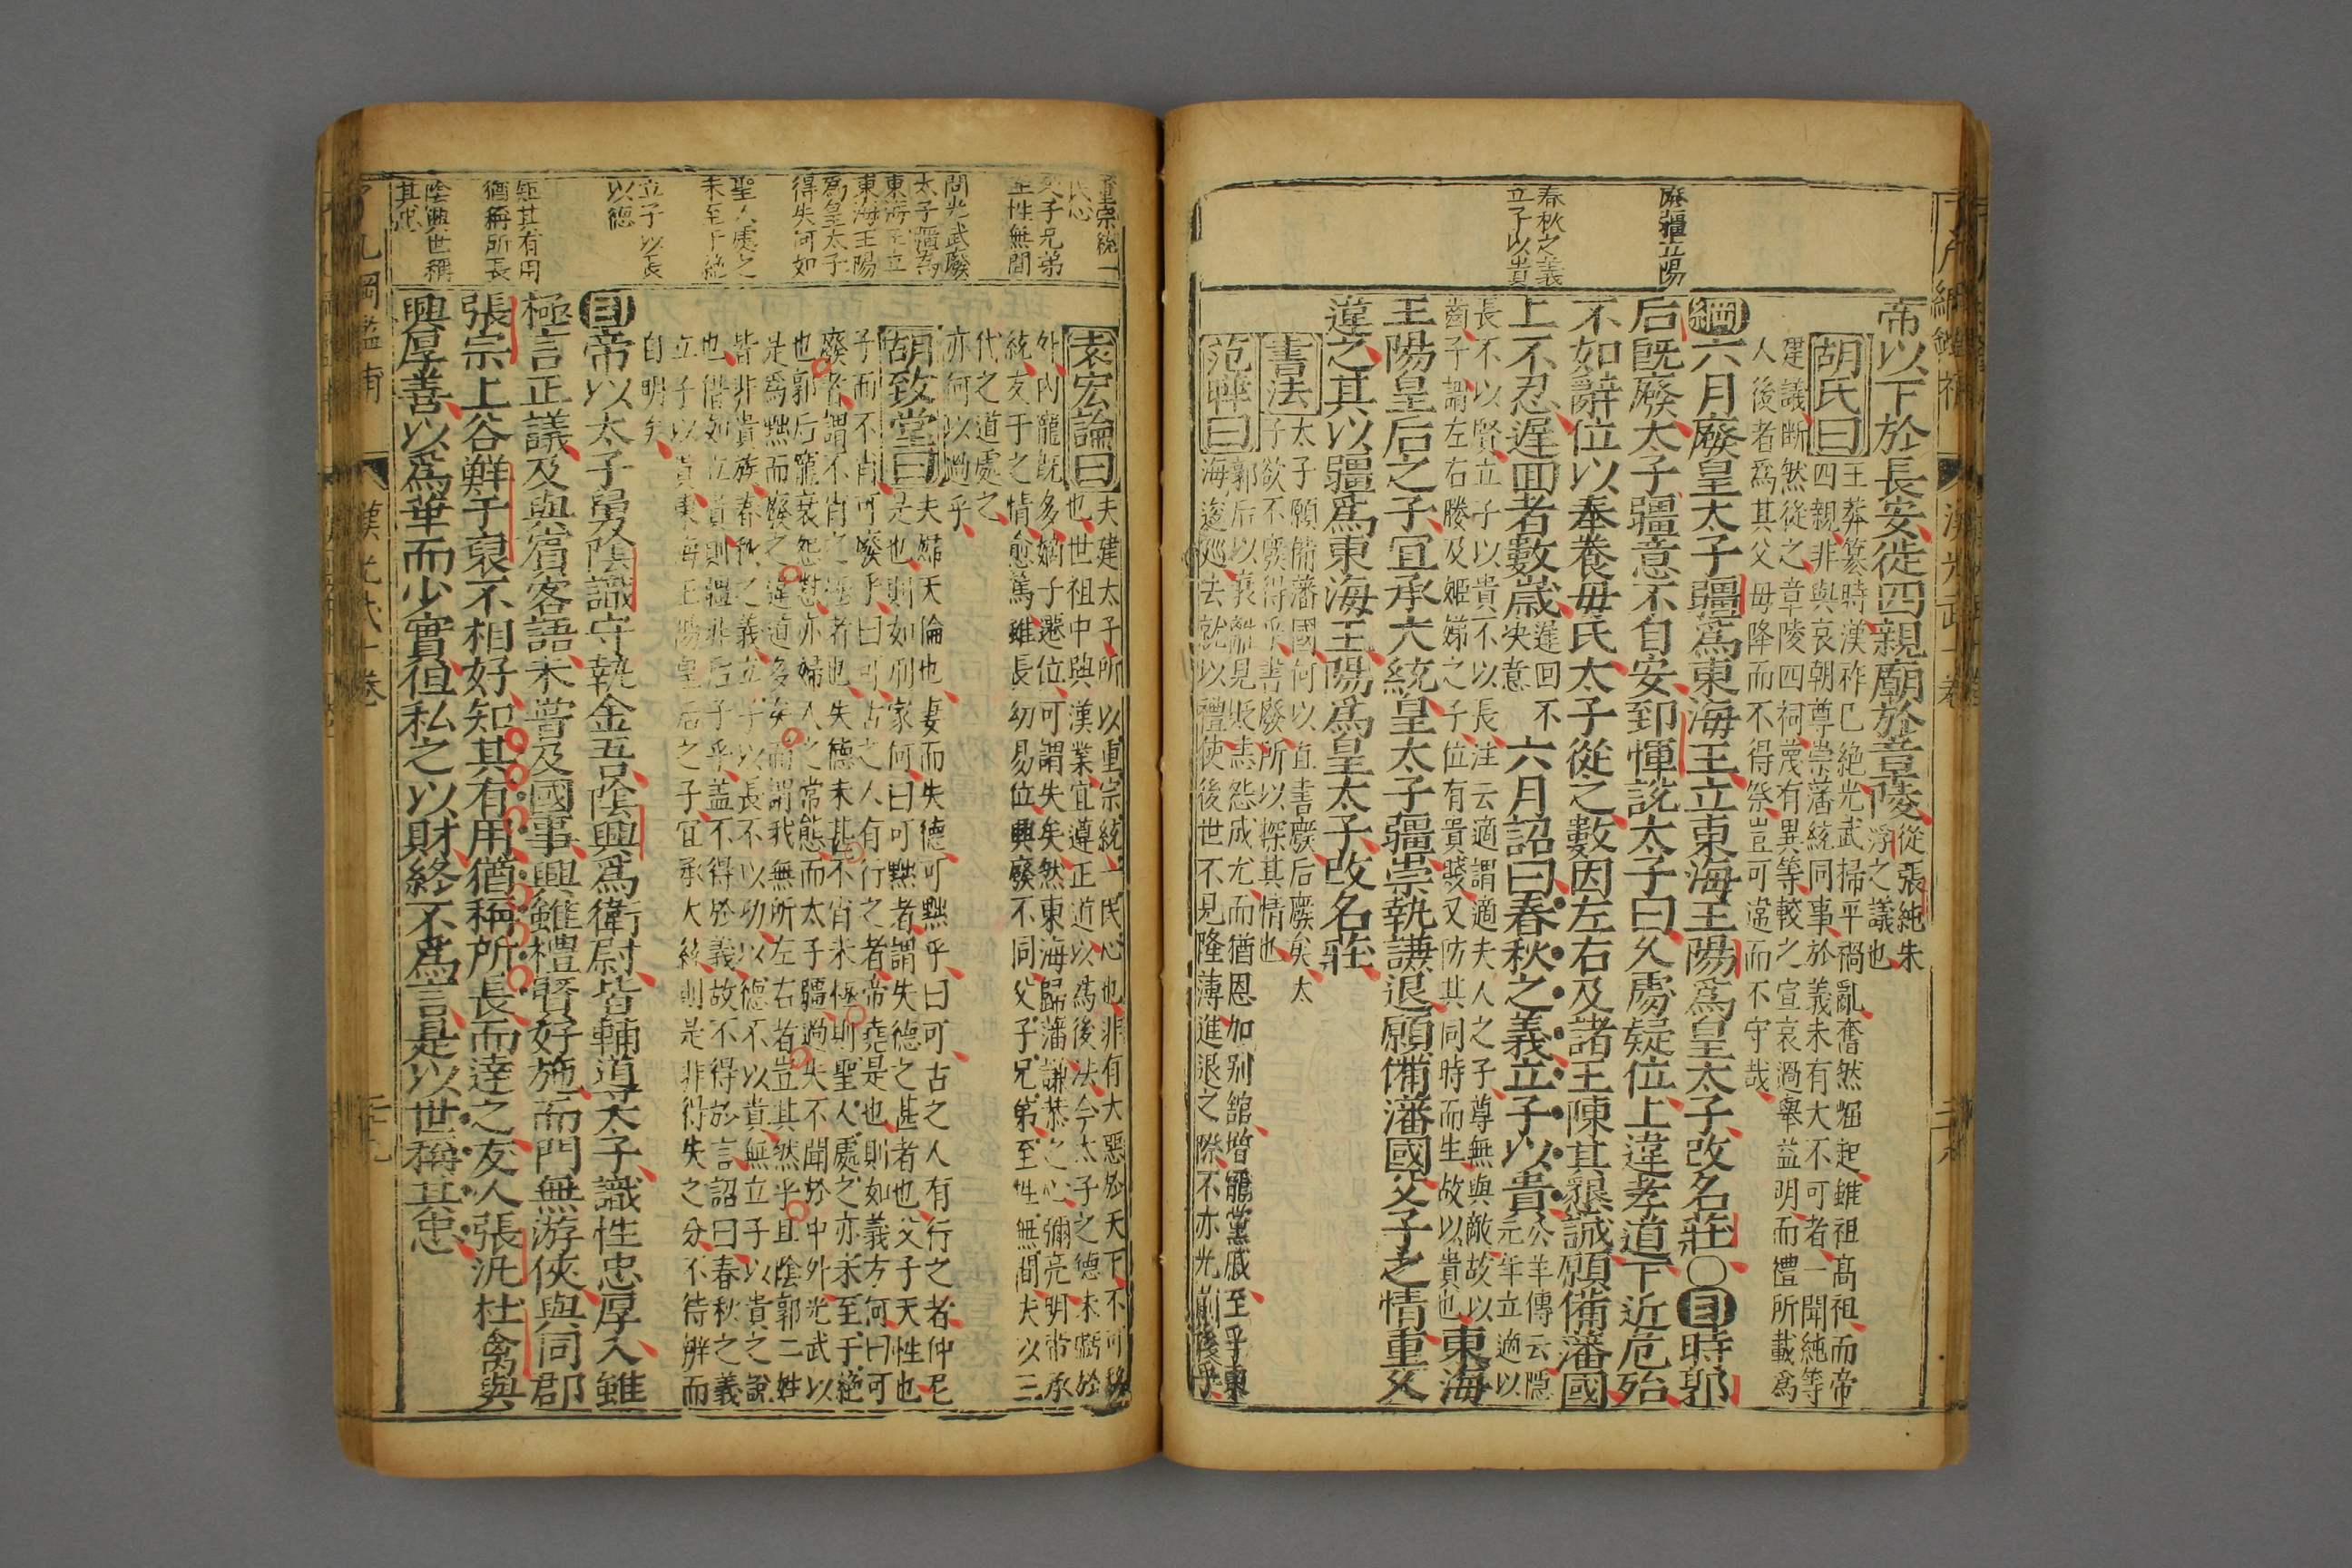 廢疆立陽
春秋之義
立子以貴
帝以下於長安徙四親廟於章陵從張純朱
浮之議也
胡氏曰王莽篡時漢祚已絕光武掃平禍亂奮然崛起雖祖高祖而帝
四親非與哀朝尊崇藩統同事於義未有大不可者一聞純等
建議斷然從之章陵四祠蔑有異等較之宣哀過舉益明而禮所載爲
人後者爲其父母降而不得祭豈可違而不守哉
綱六月廢皇太子疆爲東海王立東海王陽爲皇太子改名莊〇目時郭
后旣廢太子疆意不自安郅惲說太子曰久處疑位上違孝道下近危殆
不如辭位以奉養毋氏太子從之數因左右及諸王陳其懇誠願備藩國
上不忍遲回者數歲遲回不
決意六月詔曰春秋之義立子以貴公羊傳云隱
元年立適以
長不以賢立子以貴不以長注云適謂適夫人之子尊無與敵故以
齒子謂左右媵及姪娣之子位有貴賤又防其同時而生故以貴也東海
王陽皇后之子宜承大統皇太子疆崇執謙退願備藩國父子之情重久
違之其以疆爲東海王陽爲皇太子改名莊
書法太子願備藩國何以直書廢后廢矣太
子欲不廢得乎書廢所以探其情也
范曄曰郭后以衰離見貶恚怨成尤而猶恩加别館增寵黨戚至乎東
海逡巡去就以禮使後世不見隆薄進退之隙不亦光前後乎
重宗統一
民心
父子兄弟
至性無間
問光武廢
太子疆爲
東海王立
東海王陽
爲皇太子
得失何如
聖人處之
未至于絕
立子以長
以德
知其有用
猶稱所長
陰興世稱
其忠
袁宏論曰夫建太子所以重宗統一民心也非有大惡於天下不可移
也世祖中興漢業宜遵正道以爲後法今太子之德未虧於
外內寵旣多嫡子遷位可謂失矣然東海歸藩謙恭之心彌亮明帝承
統友于之情愈篤雖長幼易位興廢不同父子兄弟至性無間夫以三
代之道處之
亦何以過乎
胡致堂曰夫婦天倫也妻而失德可黜乎曰可古之人有行之者仲尼
是也則如刑家何曰可黜者謂失德之甚者也父子天性也
子而不肖可廢乎曰可古之人有行之者帝堯是也則如義方何曰可
廢者謂不肖之極者也失德未甚不肖未極則聖人處之亦未至于絕
也郭后寵衰怨懟亦婦人之常態而太子疆過失不聞於中外光武以
是爲黜而廢之違道多矣而謂我無所左右者豈其然乎且陰郭二姓
皆非貴族春秋之義立子以長不以功以德不以貴無立子以貴之說
也借如立貴則疆非后子乎蓋不得於義故不得於言詔曰春秋之義
立子以貴東海王陽皇后之子宜承大統則是非得失之分不待辨而
自明矣
目帝以太子舅陰識守執金吾陰興爲衛尉皆輔導太子識性忠厚入雖
極言正議及與賓客語未嘗及國事興雖禮賢好施而門無游俠與同郡
張宗上谷鮮于裒不相好知其有用猶稱所長而達之友人張汜杜禽與
興厚善以爲華而少實但私之以財終不爲言是以世稱其忠
漢光武十卷